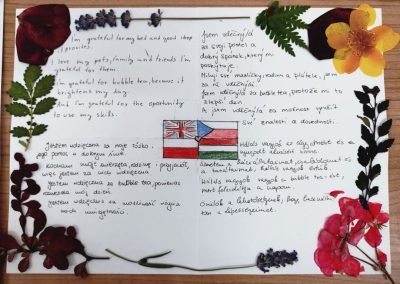 I'm grateful for my bed and good sleep
it provides
I love my pets, family and friends I'm
grateful for them.
I'm grateful for bubble tea, because it
brightens my day.
And I'm grateful for the oportunity
to use my skills.
Jsem vděčný/á
za svoji postel a
dobrý spánek, který mi
poskytuje.
Miluji své mazlíčky, rodinu a přátele, jsem
za ně vděčný/á
Jsem vděčný/á za bubble tea, protože mi to
zlepší den
A jsem vděčný/á za možnost využít
své znalosti a dovednosti.
Jestem wdzięczna za moje łóżko i
jego pomoc w dobrym śnie.
Kocham moje zwierzęta, rodzinę i przyjaciół,
więc jestem za nich wdzięczna
Jestem wdzięczna za bubble tea, ponieważ
rozwesela mój dzień
Jestem wdzięczna za możliwość użycia
moich umiejętności.
Hálás vagyok az ágyamért és a
nyugodt alvásért benne
Szeretem a háziállataimat, családomat és
a barátaimat, hálás vagyok értük
Hálás vagyok a bubble tea-ért,
mert feldobja a napom
Örülök a lehetőségnek, hogy
a képességeimet.